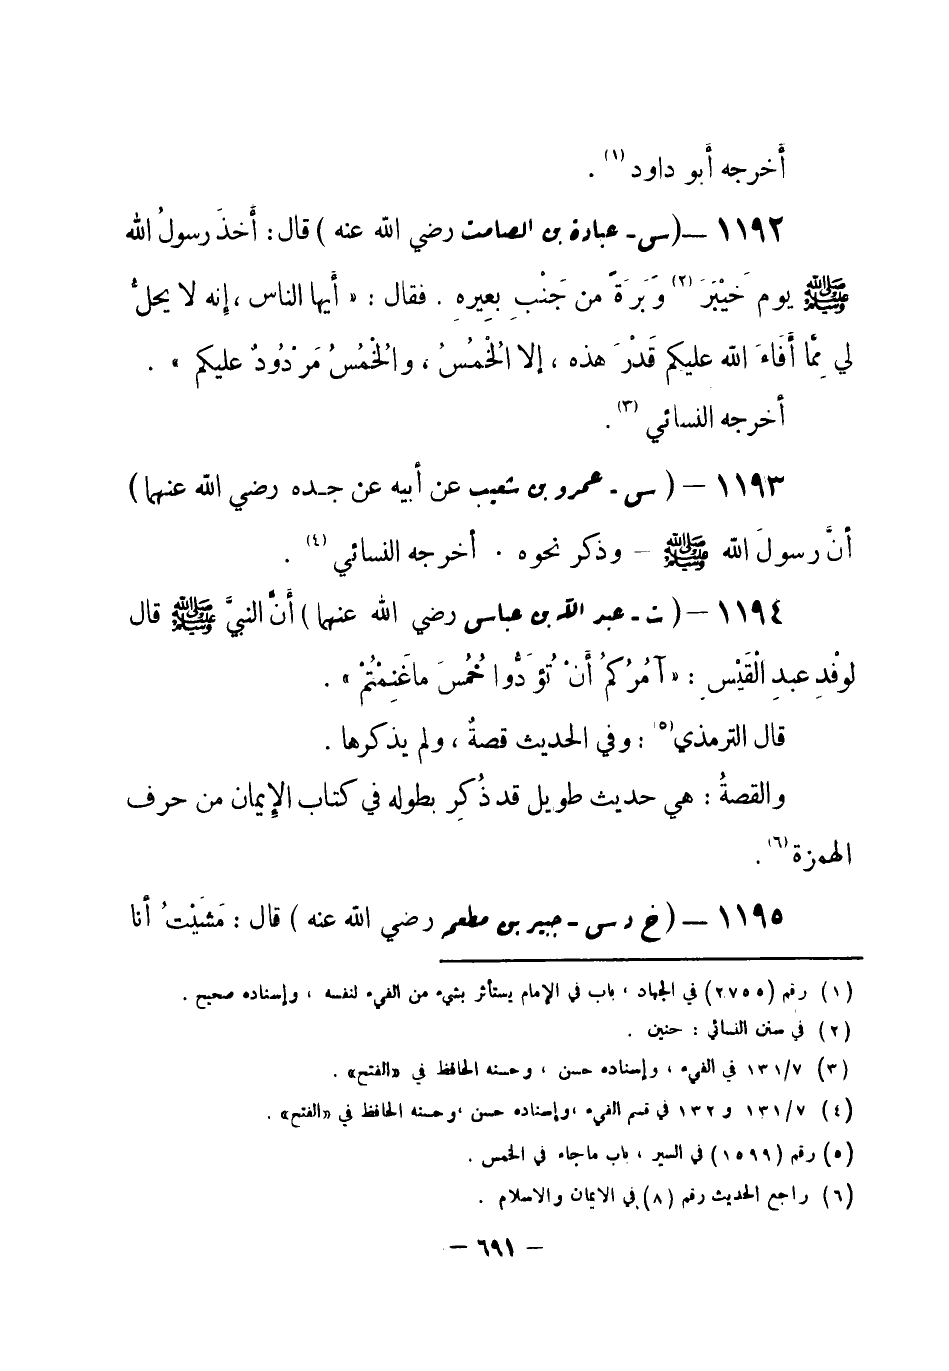 أَخرجه أَبو داود (١) .
١١٩٢ – (س - عبادة بن الصامت رضي الله عنه ) قال : أَخذَ رسولُ الله
ﷺ يوم خَيْبَرَ (٢) وَبَرَةً من جَنْبِ بعيرِه . فقال : « أَيها الناس ، إِنه لا يحلُّ
لي مِمَّا أَفَاءَ الله عليكم قَدْرَ هذه ، إلا الْخُمُسُ ، والْخُمُسُ مَرْدُودٌ عليكم » .
أخرجه النسائي (٣) .
١١٩٣ – ( س - عمرو بن شعيب عن أبيه عن جـده رضي الله عنهما )
أنَّ رسولَ الله ﷺ – وذكر نحوه . أخرجه النسائي (٤) .
١١٩٤ – ( ت - عبد الله بن عباس رضي الله عنهما ) أَنَّ النبيَّ ﷺ قال
لوفْدِ عبدِ الْقَيْسِ : « آمُرُكُمْ أَنْ تُؤَدُّوا خُمُسَ ما غَنِمْتُمْ » .
قال الترمذي (٥) : وفي الحديث قصةٌ ، ولم يذكرها .
والقصةُ : هي حديث طويل قد ذُكِر بطوله في كتاب الإِيمان من حرف
الهمزة (٦) .
١١٩٥ – ( خ د س - جبير بن مطعم رضي الله عنه ) قال : مَشَيْتُ أنا
(١) رقم (٢٧٥٥) في الجهاد ، باب في الإمام يستأثر بشيء من الفيء لنفسه ، وإسناده صحيح .
(٢) في سنن النسائي : حنين .
(٣) ١٣١/٧ في الفيء ، وإسناده حسن ، وحسنه الحافظ في «الفتح» .
(٤) ١٣١/٧ و ١٣٢ في قسم الفيء ،وإسناده حسن ،وحسنه الحافظ في «الفتح» .
(٥) رقم (١٥٩٩) في السير ، باب ماجاء في الخمس .
(٦) راجع الحديث رقم (٨) في الايمان والاسلام .
– ٦٩١ –